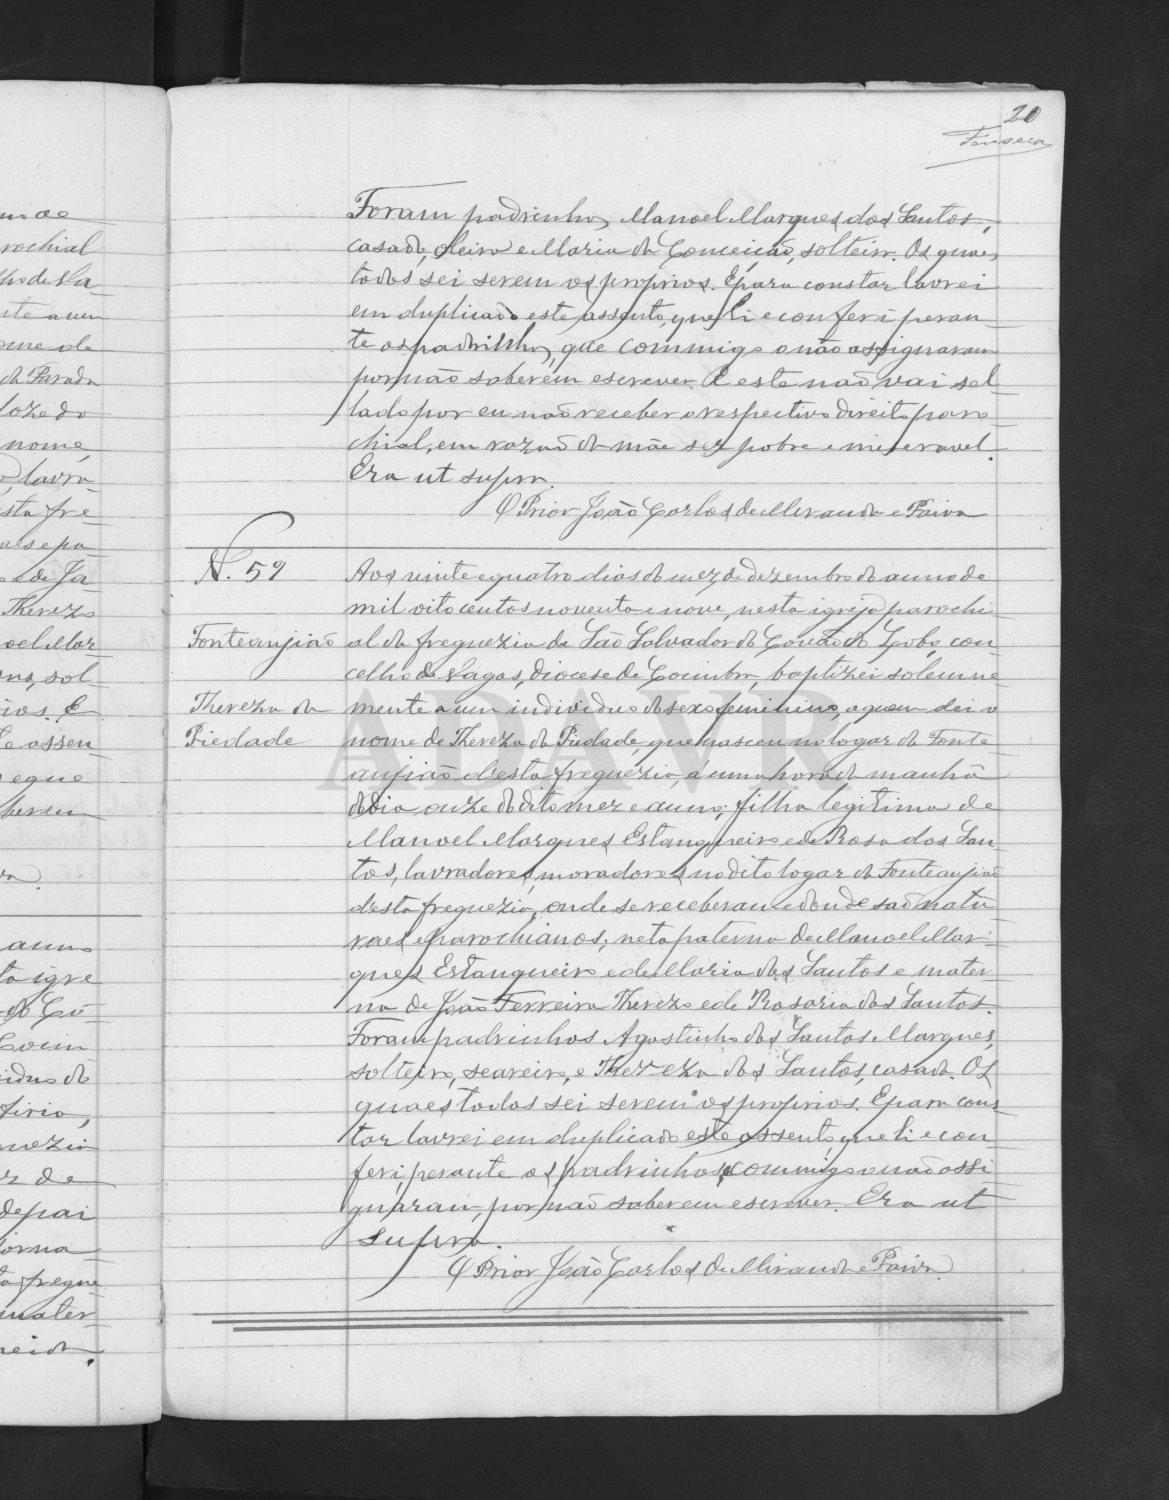 20
Fonseca
Foram padrinhos, Manoel Marques dos Santos,
casado, oleiro e Maria da Conceição, solteira. Os quaes
todos sei serem os proprios. E para constar lavrei
em duplicado este assento, que li e conferi peran-
te os padrinhos, que commigo o não assignaram
por não saberem escrever. E este não vai sel-
lado por eu não receber o respectivo direito paro-
chial, em razão da mãe ser pobre e miseravel.
Era ut supra.
O Prior João Carlos de Miranda e Paiva
N. 59
Fonteanjião
Thereza da
Piedade
Aos vinte e quatro dias do mez de dezembro do anno de
mil oito centos noventa e nove, nesta igreja parochi-
al da freguezia de São Salvador do Covão do Lobo, con-
celho de Vagos, diocese de Coimbra, baptizei solemne-
mente a um individuo do sexo feminino, a quem dei o
nome de Thereza da Piedade, que nasceu no logar da Fonte-
anjião d'esta freguezia, á uma hora da manhã
do dia onze do dito mez e anno; filha legitima de
Manoel Marques Estanqueiro e de Rosa dos San-
tos, lavradores, moradores no dito logar da Fonteanjião
desta freguezia, onde se receberam e donde são natu-
raes e parochianos; neta paterna de Manoel Mar-
ques Estanqueiro e de Maria dos Santos e mater-
na de João Ferreira Therezo e de Rosaria dos Santos.
Foram padrinhos Agostinho dos Santos Marques,
solteiro, seareiro, e Thereza dos Santos, casada. Os
quaes todos sei serem os proprios. E para cons-
tar lavrei em duplicado este assento, que li e con-
feri, perante os padrinhos, commigo o não assi-
gnaram, por não saberem escrever. Era ut
supra.
O Prior João Carlos de Miranda e Paiva.
ADAVR
rochial
ste a um
da Parada
nome,
lavra-
sta fre-
Therezo
sol-
assen
anno
ta igre
Coim
de pai
fregue
mater-